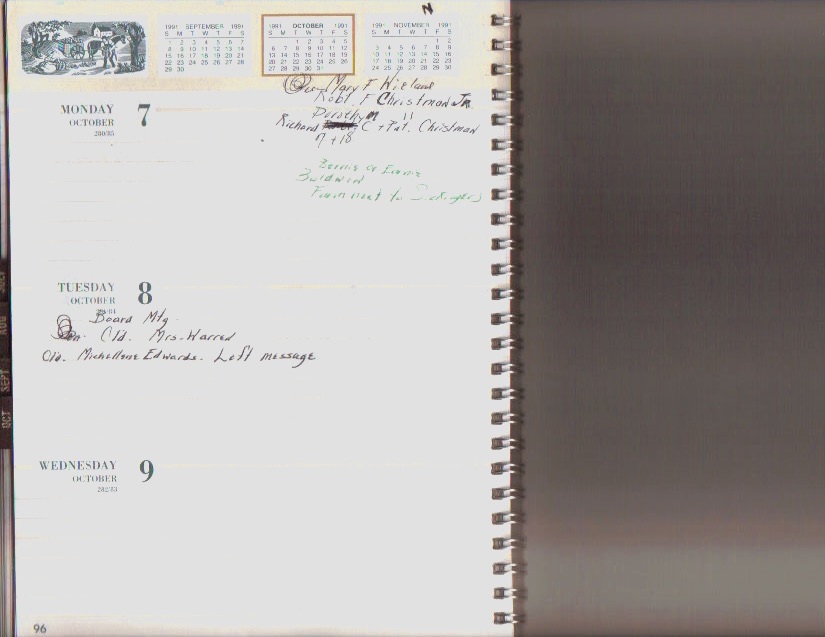 N
1991 SEPTEMBER 1991
S M T W T F S
1 2 3 4 5 6 7
8 9 10 11 12 13 14
15 16 17 18 19 20 21
22 23 24 25 26 27 28
29 30
1991 OCTOBER 1991
S M T W T F S
1 2 3 4 5
6 7 8 9 10 11 12
13 14 15 16 17 18 19
20 21 22 23 24 25 26
27 28 29 30 31
1991 NOVEMBER 1991
S M T W T F S
1 2
3 4 5 6 7 8 9
10 11 12 13 14 15 16
17 18 19 20 21 22 23
24 25 26 27 28 29 30
Mary F Wieland
Robt F Christman Jr.
Dorothy M "
Richard C + Pat. Christman
17 + 18
MONDAY 7
OCTOBER
280/85
Baldwin
Farm next to
TUESDAY 8
OCTOBER
281/84
Board Mtg
Cld. Mrs. Warred
Cld. Michellene Edwards. Left message
WEDNESDAY 9
OCTOBER
282/83
JULY
AUG
SEPT
OCT
96